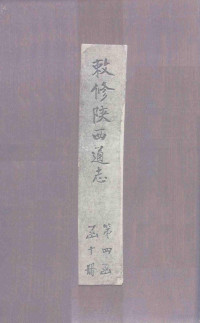 敕修陕西通志
第四函
函十册